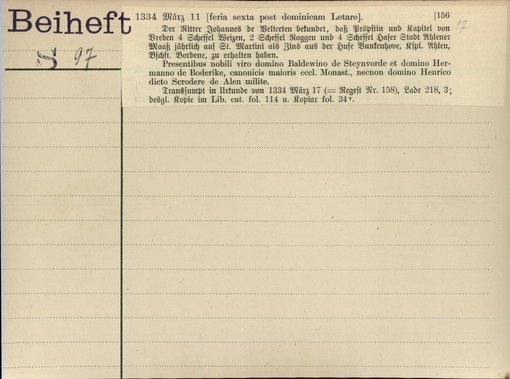 Beiheft
S 97
1334 März 11 [feria sexta post dominicam Letare]. [156
97
Der Ritter Johannes de Belteten bekundet, daß Pröpstin und Kapitel von
Vreden 4 Scheffel Weizen, 2 Scheffel Roggen und 4 Scheffel Hafer Stadt Ahlener
Maaß jährlich auf St. Martini als Zins aus der Hufe Bunkenhove, Kspl. Ahlen,
Bschft. Borbene, zu erhalten haben.
Presentibus nobili viro domino Baldewino de Steynvorde et domino Her-
manno de Boderike, canonicis maioris eccl. Monast., necnon domino Henrico
dicto Scrodere de Alen milite.
Transsumpt in Urkunde von 1334 März 17 (= Regest Nr. 158), Lade 218, 3;
desgl. Kopie im Lib. cat. fol. 114 u. Kopiar fol. 34v.